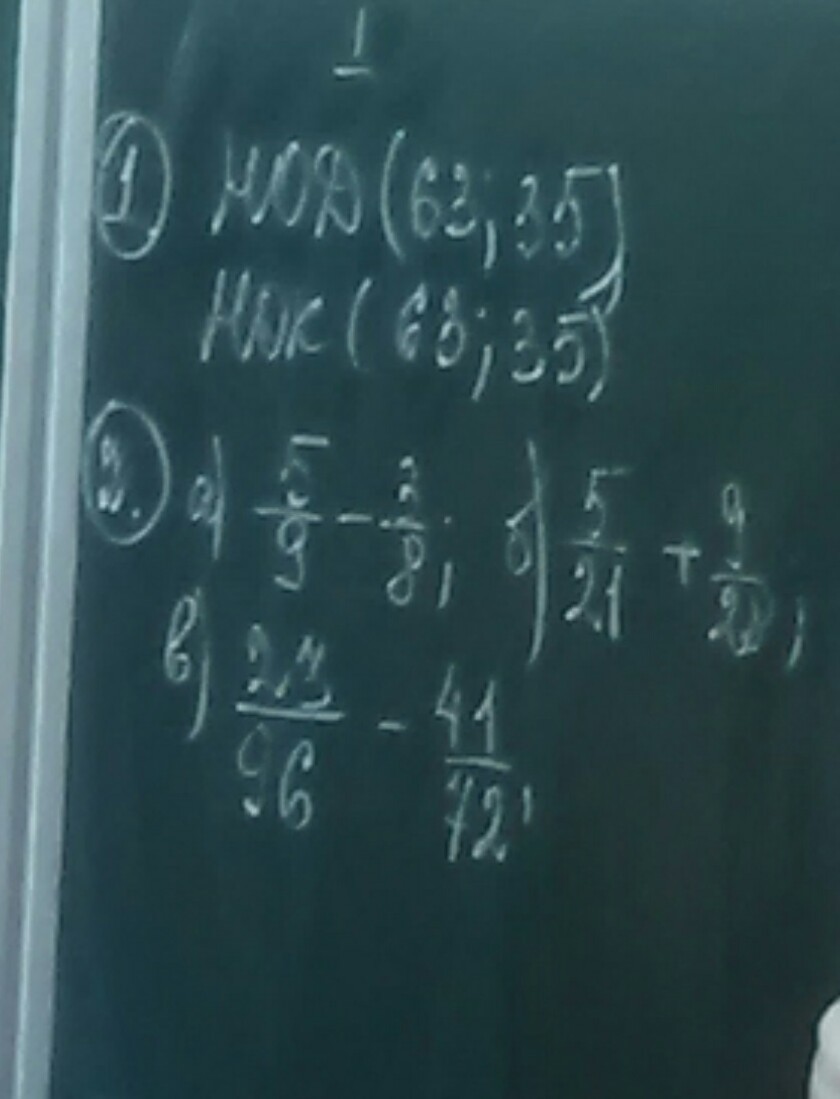 1
1 НОД (63; 35)
НОК (63; 35)
2. а) 5/9 - 3/8; б) 5/21 + 9/28;
в) 23/96 - 41/72;